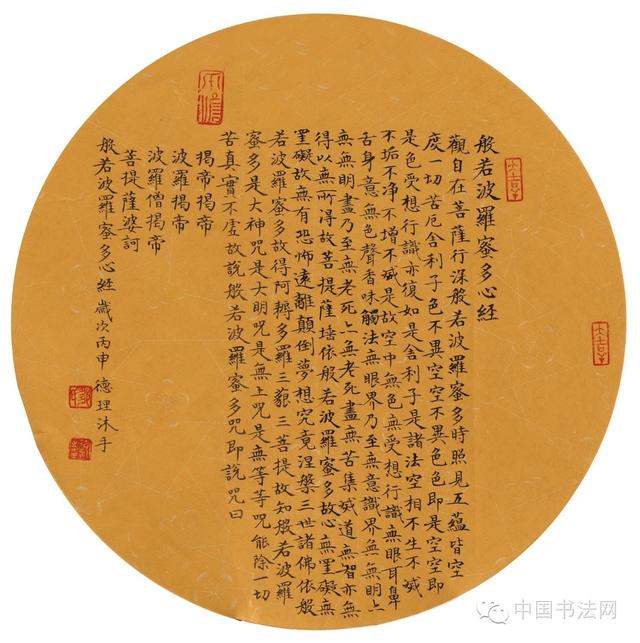 般若波羅蜜多心經
觀自在菩薩行深般若波羅蜜多時照見五蘊皆空
度一切苦厄舍利子色不異空空不異色色即是空空即
是色受想行識亦復如是舍利子是諸法空相不生不滅
不垢不净不增不減是故空中無色無受想行識無眼耳鼻
舌身意無色聲香味觸法無眼界乃至無意識界無無明亦
無無明盡乃至無老死亦無老死盡無苦集滅道無智亦無
得以無所得故菩提薩埵依般若波羅蜜多故心無罣礙無
罣礙故無有恐怖遠離顛倒夢想究竟涅槃三世諸佛依般
若波羅蜜多故得阿耨多羅三藐三菩提故知般若波羅
蜜多是大神咒是大明咒是無上咒是無等等咒能除一切
苦真實不虛故說般若波羅蜜多咒即說咒曰
揭帝揭帝
波羅揭帝
波羅僧揭帝
菩提薩婆訶
般若波羅蜜多心經歲次丙申德理沐手
中国书法网